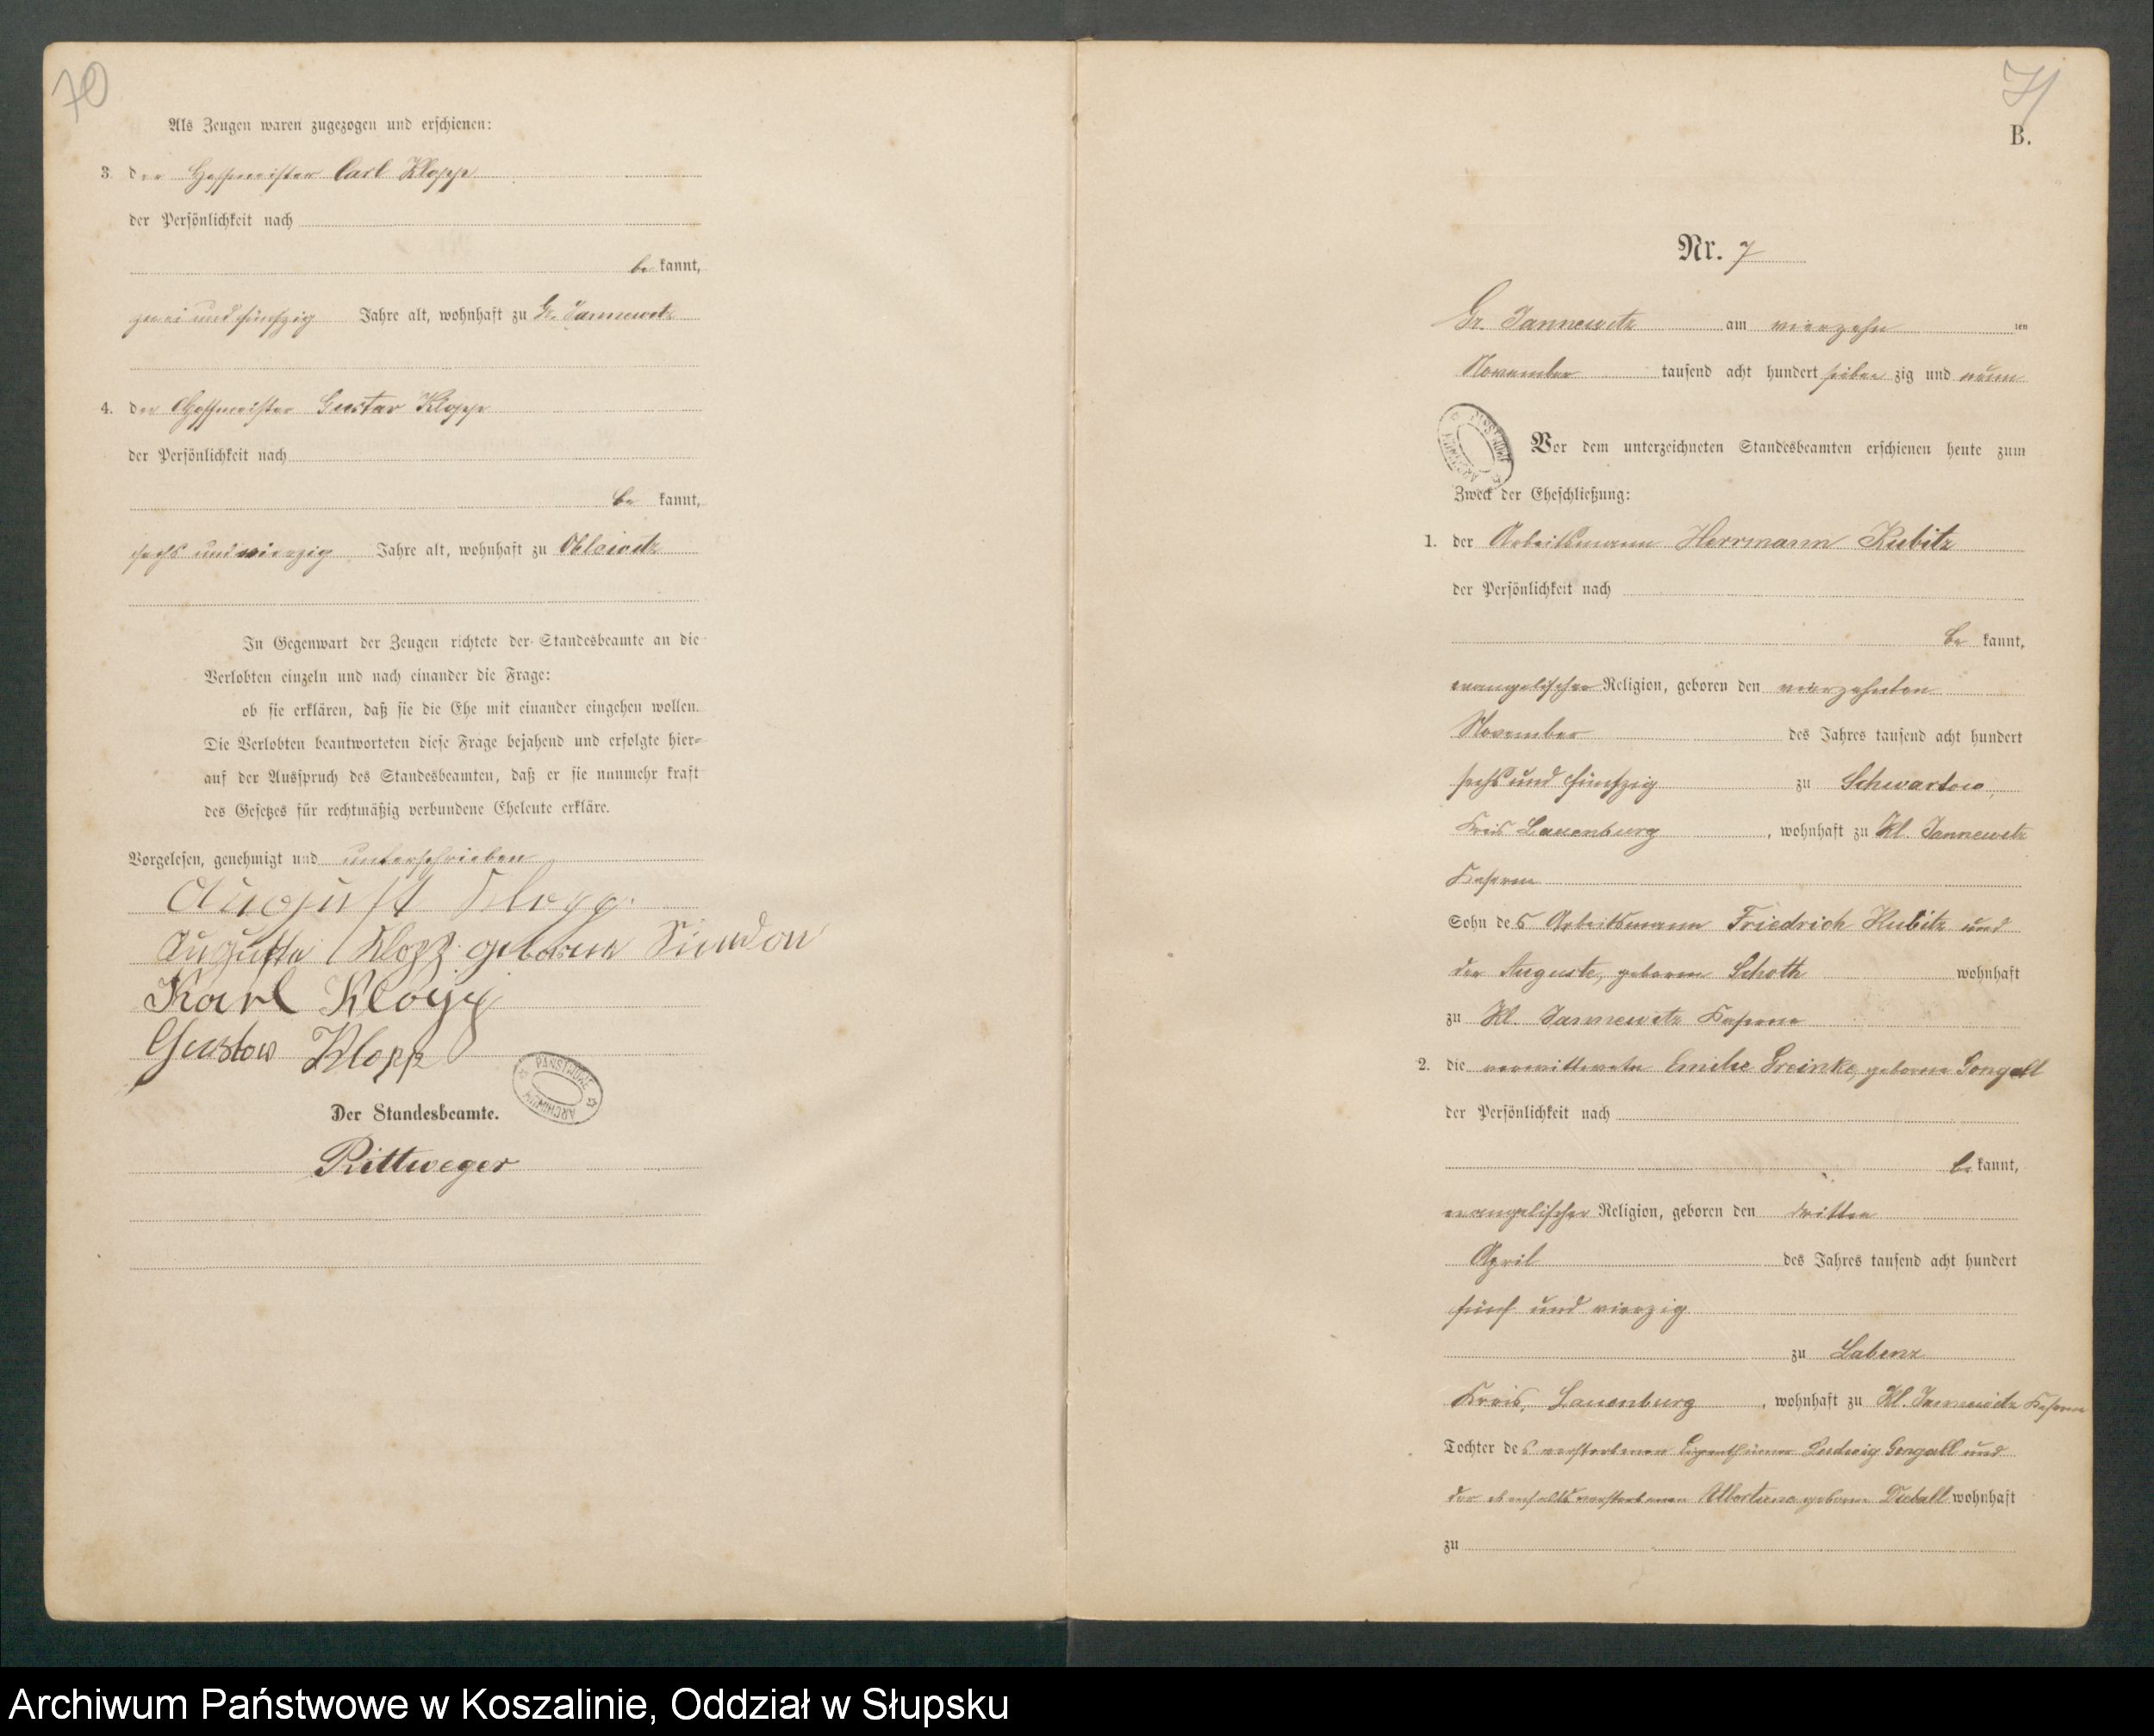 70
Als Zeugen waren zugezogen und erschienen:
3. der Hofmeister Carl Klopp
der Persönlichkeit nach
be kannt,
zwei und fünfzig Jahre alt, wohnhaft zu Gr. Jannewitz
4. der Hofmeister Gustav Klopp
der Persönlichkeit nach
be kannt,
sechs und vierzig Jahre alt, wohnhaft zu
In Gegenwart der Zeugen richtete der Standesbeamte an die
Verlobten einzeln und nach einander die Frage:
ob sie erklären, daß sie die Ehe mit einander eingehen wollen.
Die Verlobten beantworteten diese Frage bejahend und erfolgte hier-
auf der Ausspruch des Standesbeamten, daß er sie nunmehr kraft
des Gesetzes für rechtmäßig verbundene Eheleute erkläre.
Vorgelesen, genehmigt und unterschrieben
August Klopp
Auguste Klopp geborene
Karl Klopp
Gustav Klopp
PAŃSTWOWE ARCHIWUM
Der Standesbeamte.
Rittweger
71
B.
Nr. 7
Gr. Jannewitz am vierzehn ten
November tausend acht hundert sieben zig und neun
PAŃSTWOWE ARCHIWUM
Vor dem unterzeichneten Standesbeamten erschienen heute zum
Zweck der Eheschließung:
1. der Arbeitsmann Herrmann Kubitz
der Persönlichkeit nach
be kannt,
evangelischer Religion, geboren den vierzehnten
November des Jahres tausend acht hundert
sechs und fünfzig zu Schwartow,
Kreis Lauenburg, wohnhaft zu Kl. Jannewitz
Sohn des Arbeitsmann Friedrich Kubitz und
der Auguste, geborene Schoth wohnhaft
zu Kl. Jannewitz
2. die verwittwete Emilie Greinke, geborene Gongoll
der Persönlichkeit nach
be kannt,
evangelischer Religion, geboren den dritten
April des Jahres tausend acht hundert
fünf und vierzig
zu Labenz
Kreis Lauenburg, wohnhaft zu Kl. Jannewitz
Tochter des verstorbenen Eigenthümer Ludwig Gongoll und
der ebenfalls verstorbenen Albertine geborene Duball wohnhaft
zu
Archiwum Państwowe w Koszalinie, Oddział w Słupsku